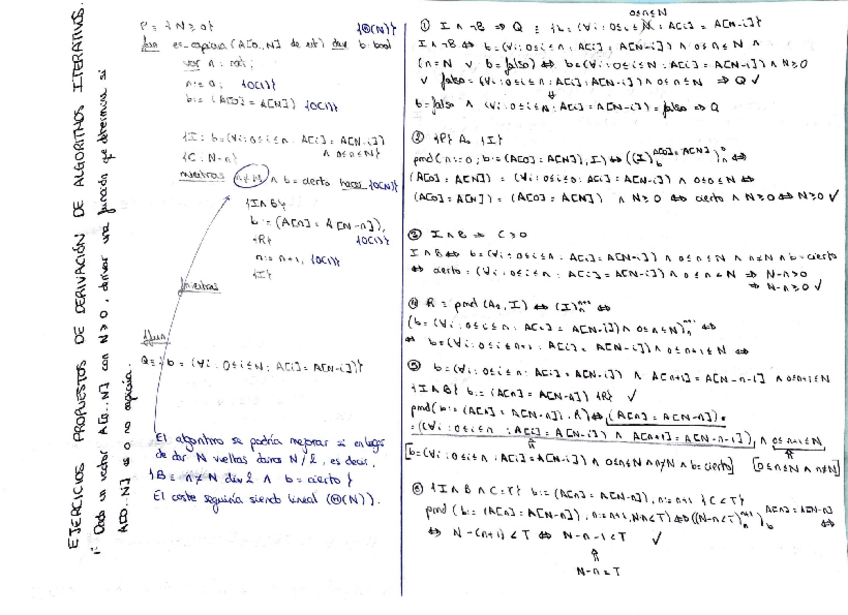 EJERCICIOS PROPUESTOS DE DERIVACIÓN DE ALGORITMOS ITERATIVOS.
1: Dado un vector A[0..N] con N≥0, derivar una función que determine si
A[0..N] es o no capicúa.
P ≡ {N ≥ 0} {Θ(N)}
fun es-capicua (A[0..N] de ent) dev b: bool
var n: nat;
n:=0; {O(1)}
b:= (A[0] = A[N]) {O(1)}
{I: b=(∀i: 0≤i≤n: A[i] = A[N-i])
∧ 0≤n≤N}
{C: N-n}
mientras n≠N ∧ b = cierto hacer {O(N)}
{I∧B}
b:= (A[n] = A[N-n]),
{R} {O(1)}
n:= n+1, {O(1)}
{I}
fmientras
ffun
Q≡{b = (∀i: 0≤i≤N: A[i] = A[N-i])}
El algoritmo se podría mejorar si en lugar
de dar N vueltas damos N/2, es decir,
{B ≡ n≠N div 2 ∧ b = cierto}
El coste seguiría siendo lineal (Θ(N)).
0≤n≤N
① I ∧ ¬B ⇒ Q ≡ {b = (∀i: 0≤i≤N: A[i] = A[N-i]}
I ∧ ¬B ⇔ b=(∀i: 0≤i≤n: A[i] = A[N-i]) ∧ 0≤n≤N ∧
(n=N ∨ b=falso) ⇔ b=(∀i: 0≤i≤N: A[i] = A[N-i]) ∧ N≥0
∨ falso = (∀i: 0≤i≤n: A[i] = A[N-i]) ∧ 0≤n≤N ⇒ Q ✓
b=falso ∧ (∀i: 0≤i≤N: A[i]=A[N-i]) = falso ⇒ Q
{P} A₀ {I}
pmd(n:=0; b:=(A[0]=A[N]), I) ⇔ ((I) A[0]=A[N] b) 0 n ⇔
(A[0] = A[N]) = (∀i: 0≤i≤0: A[i] = A[N-i]) ∧ 0≤0≤N ⇔
(A[0] = A[N]) = (A[0] = A[N]) ∧ N≥0 ⇔ cierto ∧ N≥0 ⇔ N≥0 ✓
I ∧ B ⇒ C≥0
I∧B ⇔ b=(∀i: 0≤i≤n: A[i] = A[N-i]) ∧ 0≤n≤N ∧ n≠N ∧ b=cierto
⇔ cierto = (∀i: 0≤i≤n: A[i] = A[N-i]) ∧ 0≤n<N ⇒ N-n>0
⇒ N-n≥0 ✓
④ R ≡ pmd (A₂, I) ⇔ (I) n+1 n ⇔
(b=(∀i: 0≤i≤n: A[i] = A[N-i]) ∧ 0≤n≤N) n+1 n ⇔
⇔ b=(∀i: 0≤i≤n+1: A[i] = A[N-i]) ∧ 0≤n+1≤N ⇔
⑤ b=(∀i: 0≤i≤n: A[i] = A[N-i]) ∧ A[n+1] = A[N-n-1] ∧ 0≤n+1≤N
{I∧B} b:=(A[n] = A[N-n]) {R} ✓
pmd(b:=(A[n] = A[N-n]), R) ⇔ (A[n] = A[N-n]) =
=((∀i: 0≤i≤n: A[i] = A[N-i]) ∧ A[n+1] = A[N-n-1]) ∧ 0≤n+1≤N
[b=(∀i: 0≤i≤n: A[i] = A[N-i]) ∧ 0≤n≤N ∧ n≠N ∧ b=cierto] [0≤n≤N ∧ n≠N]
⑥ {I ∧ B ∧ C=T} b:=(A[n] = A[N-n]), n:=n+1 {C<T}
pmd (b:=(A[n] = A[N-n]), n:=n+1, N-n<T) ⇔ ((N-n<T) n+1 n) A[n]=A[N-n] b ⇔
⇔ N-(n+1)<T ⇔ N-n-1<T ✓
N-n=T